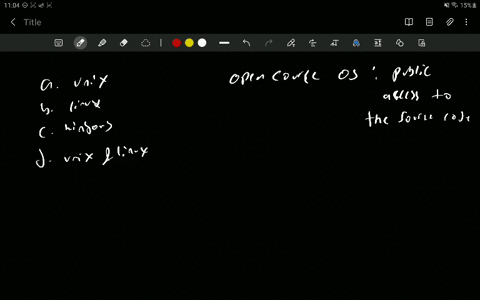 11:04
15%
Title
a. unix
b. linux
c. windows
d. unix & linux
open cource OS : public
access to
the source code